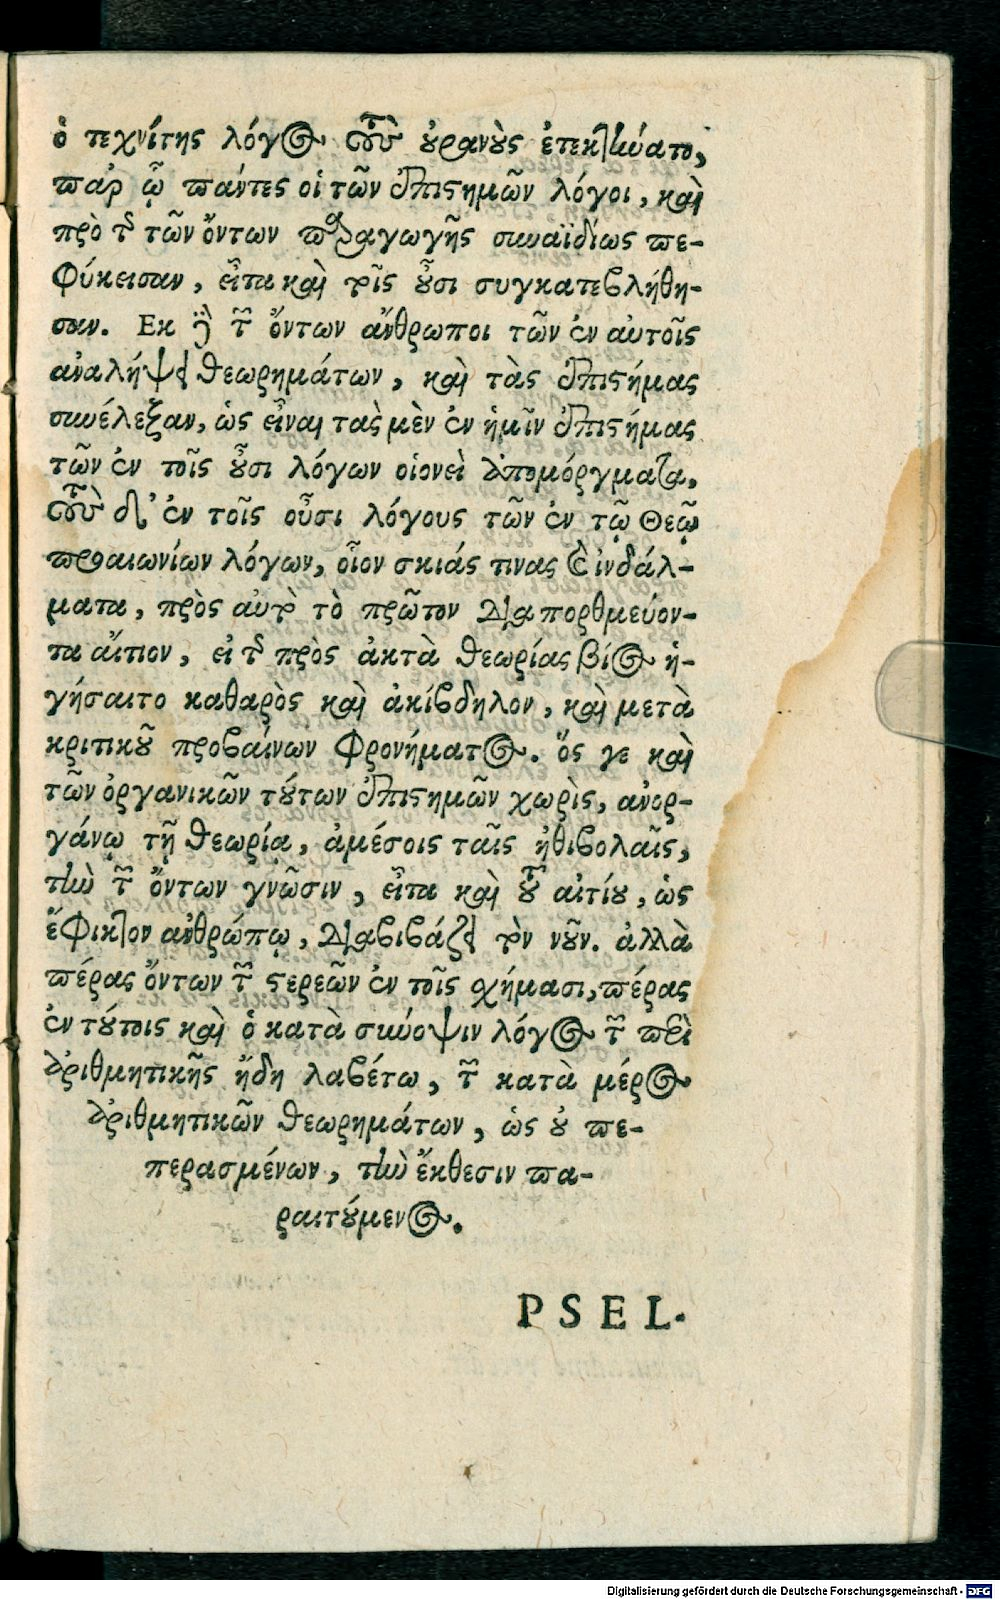 ὁ τεχνίτης λόγος τοὺς οὐρανοὺς ἐτεκτήνατο,
παρ ᾧ πάντες οἱ τῶν ἐπιστημῶν λόγοι, καὶ
πρὸ τῆς τῶν ὄντων παραγωγῆς συναϊδίως πε-
φύκεισαν, εἶτα καὶ τοῖς οὖσι συγκατεβλήθη-
σαν. Εκ δὲ τῶν ὄντων ἄνθρωποι τῶν ἐν αὐτοῖς
ἀναλήψει θεωρημάτων, καὶ τὰς ἐπιστήμας
συνέλεξαν, ὡς εἶναι τὰς μὲν ἐν ἡμῖν ἐπιστήμας
τῶν ἐν τοῖς οὖσι λόγων οἱονεὶ ἀπομόργματα,
τοὺς δ' ἐν τοῖς οὖσι λόγους τῶν ἐν τῷ Θεῷ
προαιωνίων λόγων, οἷον σκιάς τινας καὶ ἰνδάλ-
ματα, πρὸς αὐτὸ τὸ πρῶτον διαπορθμεύον-
τα αἴτιον, εἰ τῆς πρὸς ἀκτὰ θεωρίας βίος ἡ-
γήσαιτο καθαρὸς καὶ ἀκίβδηλον, καὶ μετὰ
κριτικοῦ προβαίνων φρονήματος. ὅς γε καὶ
τῶν ὀργανικῶν τούτων ἐπιστημῶν χωρὶς, ἀνορ-
γάνῳ τῇ θεωρίᾳ, ἀμέσοις ταῖς ἐπιβολαῖς,
τὴν τῶν ὄντων γνῶσιν, εἶτα καὶ τοῦ αἰτίου, ὡς
ἔφικτον ἀνθρώπῳ, διαβιβάζει τὸν νοῦν. ἀλλὰ
πέρας ὄντων τῶν στερεῶν ἐν τοῖς σχήμασι, πέρας
ἐν τούτοις καὶ ὁ κατὰ σύνοψιν λόγος τῶν περὶ
ἀριθμητικῆς ἤδη λαβέτω, τῶν κατὰ μέρος
ἀριθμητικῶν θεωρημάτων, ὡς οὐ πε-
περασμένων, τὴν ἔκθεσιν πα-
ραιτούμενος.
PSEL-
Digitalisierung gefördert durch die Deutsche Forschungsgemeinschaft - DFG